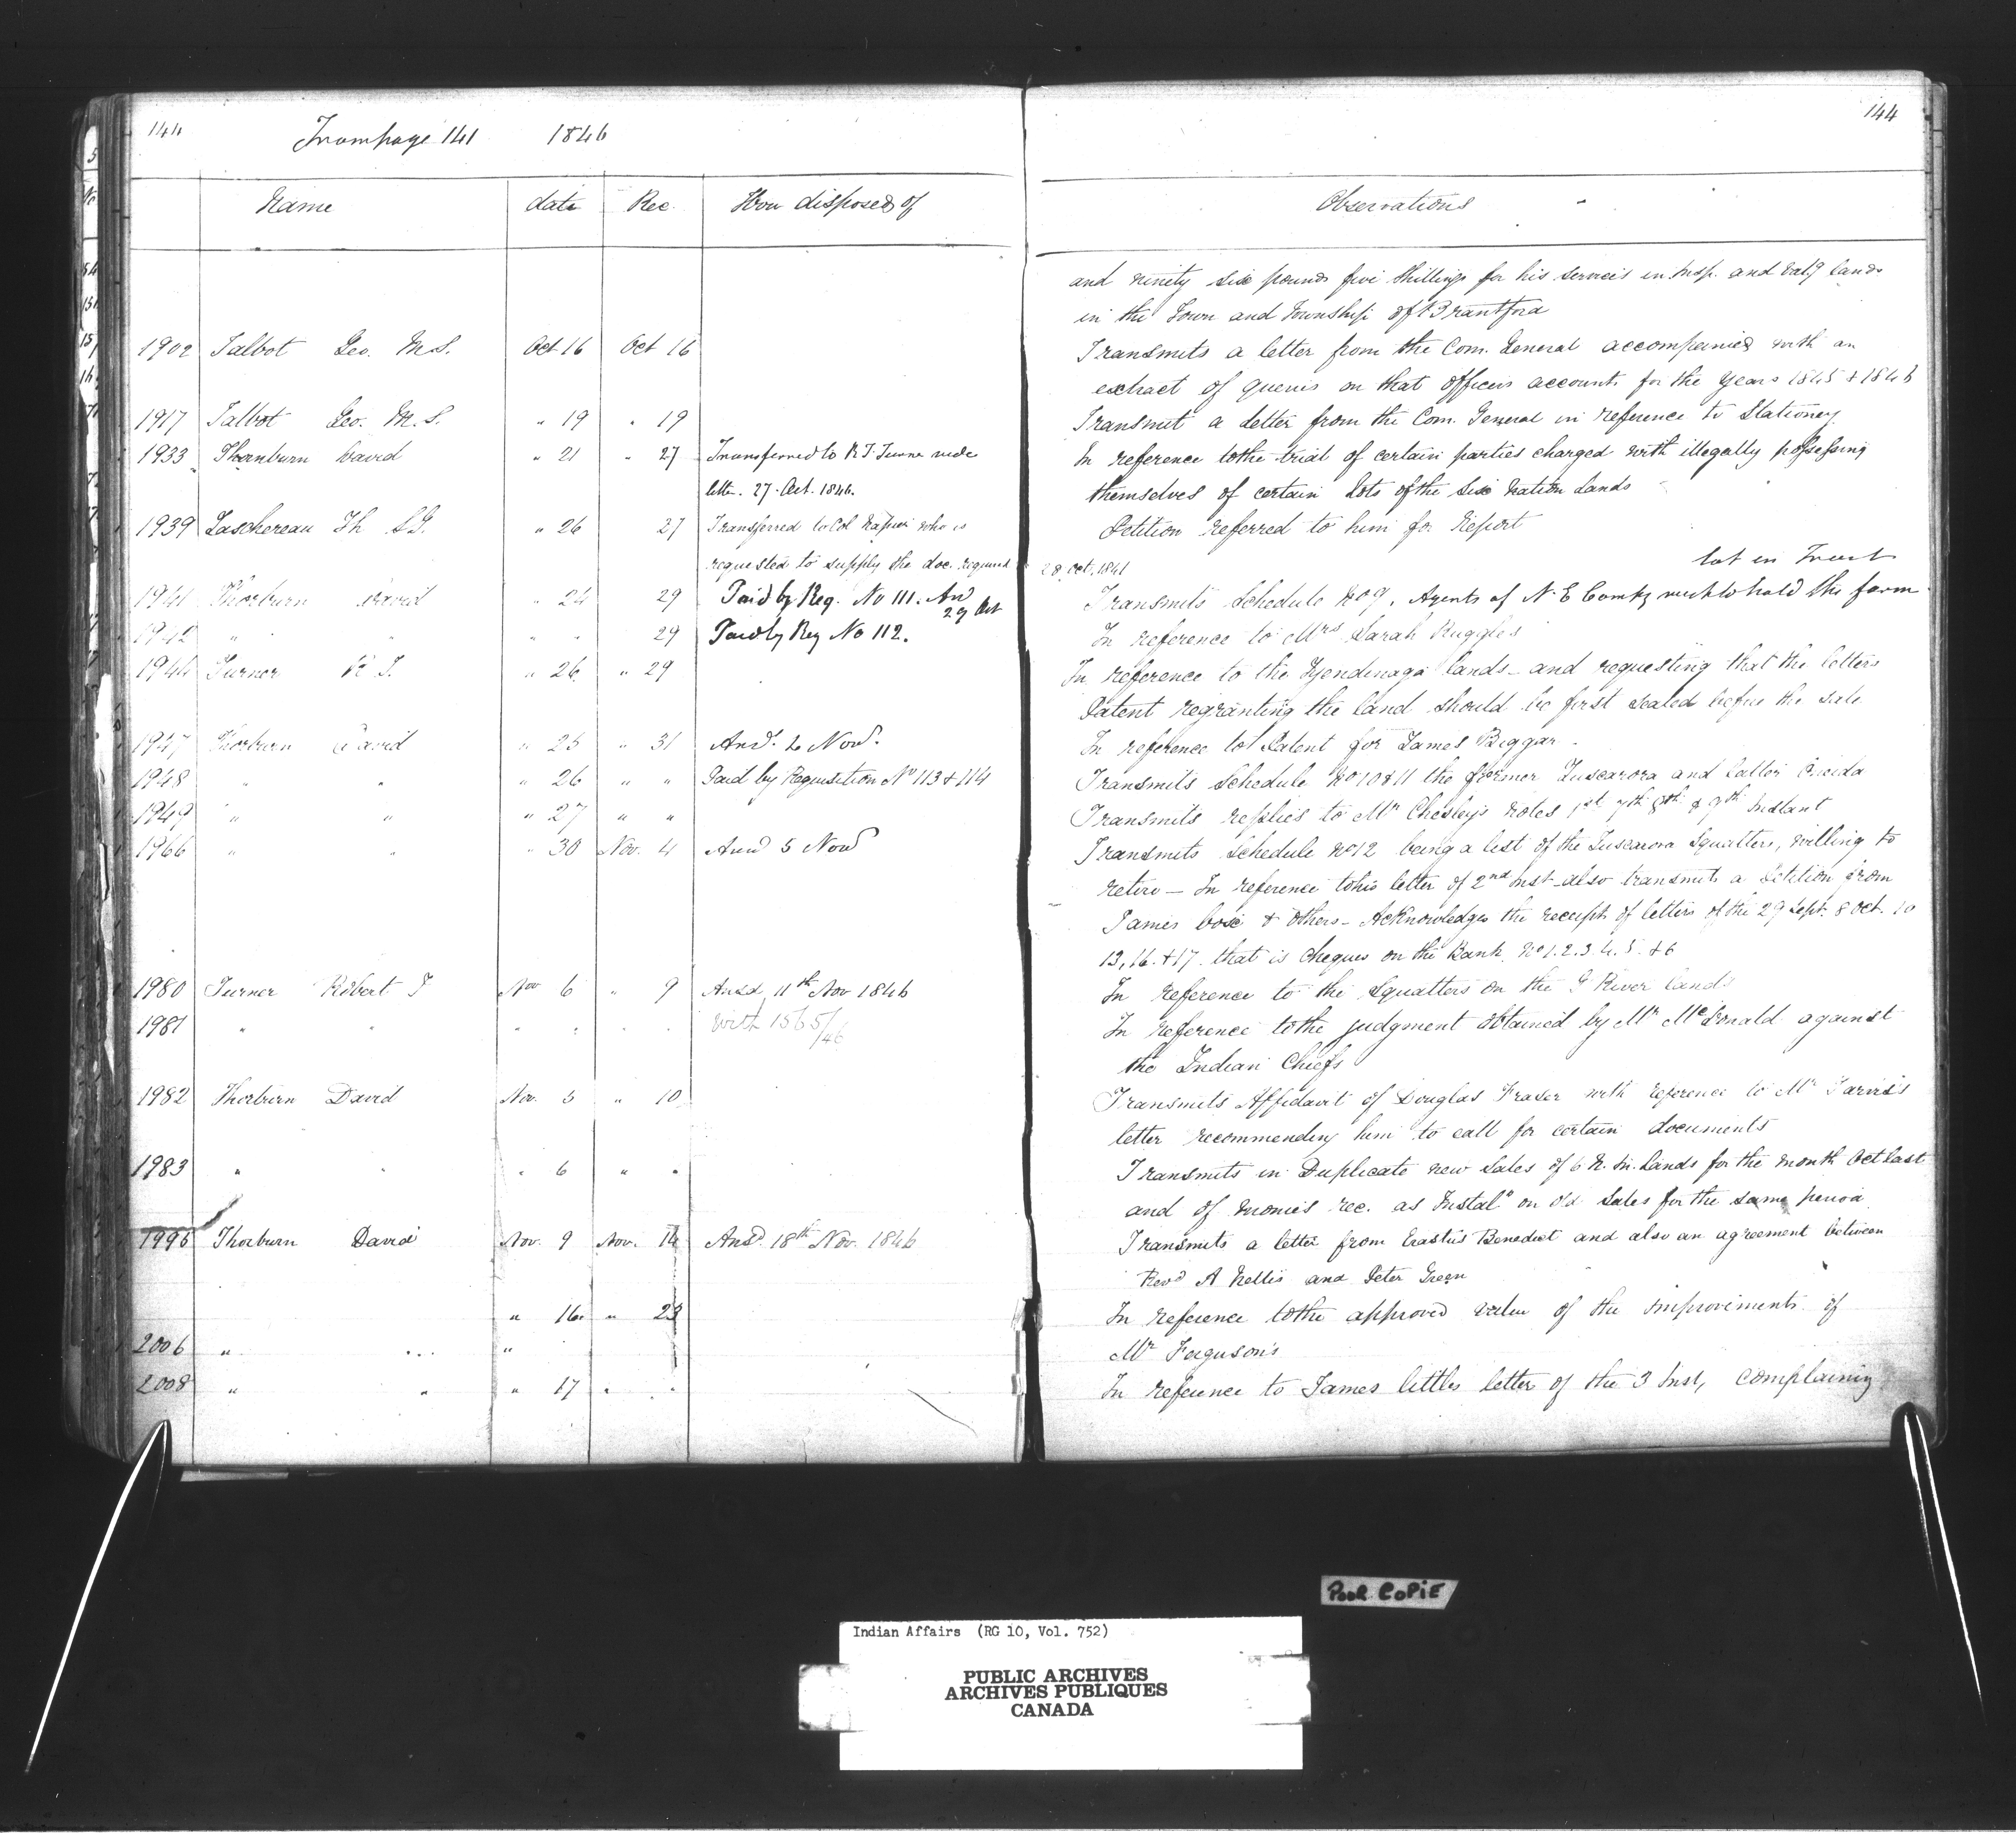 144 From page 141 1846
Name date Rec. How disposed of
1902 Talbot Geo. M.S. Oct 16 Oct 16
1917 Talbot Geo. M.S. " 19 " 19
1933 Thornburn David " 21 " 27 Transferred to R T. Turner vide
letter. 27. Oct. 1846.
1939 Taschereau Th " 26 27 Transferred to Col Napier who is
requested to supply the doc. required
1941 Thorburn David " 24 29 Paid by Reg. No 111. And
29 Oct
1942 " " " " 29 Paid by Reg No 112.
1944 Turner R T. " 26 " 29
1947 Thorburn David " 25 " 31 Ansd. 2 Novr.
1948 " " " 26 " " Paid by Requisition No 113 & 114
1949 " " " 27 " "
1966 " " " 30 Nov. 4 Ansd 5 Novr
1980 Turner Robert T Nov 6 " 9 Ansd 11th Nov 1846
1981 " " " " " " With 1565/46
1982 Thorburn David Nov. 5 " 10
1983 " " " 6 " "
1996 Thorburn David Nov. 9 Nov. 14 Ansd. 18th Nov. 1846
" 16 " 23
2006 " " "
2008 " " " 17 " "
144
Observations
and ninety six pounds five shillings for his services in insp. and valg lands
in the Town and Township of Brantford
Transmits a letter from the Com. General accompanied with an
extract of queries on that officers accounts for the years 1845 & 1846
Transmit a letter from the Com. General in reference to Stationey
In reference to the trial of certain parties charged with illegally possessing
themselves of certain Lots of the Six Nation Lands
Petition referred to him for Report
28 Oct. 1841 lot in Trust
Transmits Schedule No 9, Agents of N. E Comky wish to hold the farm
In reference to Mrs Sarah Ruggles
In reference to the Tyendinaga lands - and requesting that the letters
Patent regranting the land should be first sealed before the sale
In reference to Patent for James Biggar -
Transmits Schedule No 10 & 11 the former Tuscarora and latter Oneida
Transmits replies to Mr Chesley's notes 1st 7th 8th & 9th Instant
Transmits Schedule No 12 being a list of the Tuscarora Squatters, willing to
retire - In reference to his letter of 2nd Inst - also transmits a Petition from
James & others - Acknowledges the receipt of letters of the 29 Sept. 8 Oct. 10
13, 16. & 17. that is cheques on the Bank. No 1. 2. 3. 4. 5. & 6
In reference to the Squatters on the G River lands
In reference to the judgment obtained by Mr McDonald against
the Indian Chiefs
Transmits Affidavit of Douglas Fraser with reference to Mr Jarvis's
letter recommending him to call for certain documents
Transmits in Duplicate new Sales of 6 N. In. Lands for the month Oct last
and of monies rec. as Instal" on old Sales for the same period
Transmits a letter from Erastus Benedict and also an agreement between
Revd A Nellis and Peter Green
In reference to the approved value of the improvements of
Mr Ferguson's
In reference to James littles letter of the 3 Inst, complaining
POOR COPIE
Indian Affairs (RG 10, Vol. 752)
PUBLIC ARCHIVES
ARCHIVES PUBLIQUES
CANADA